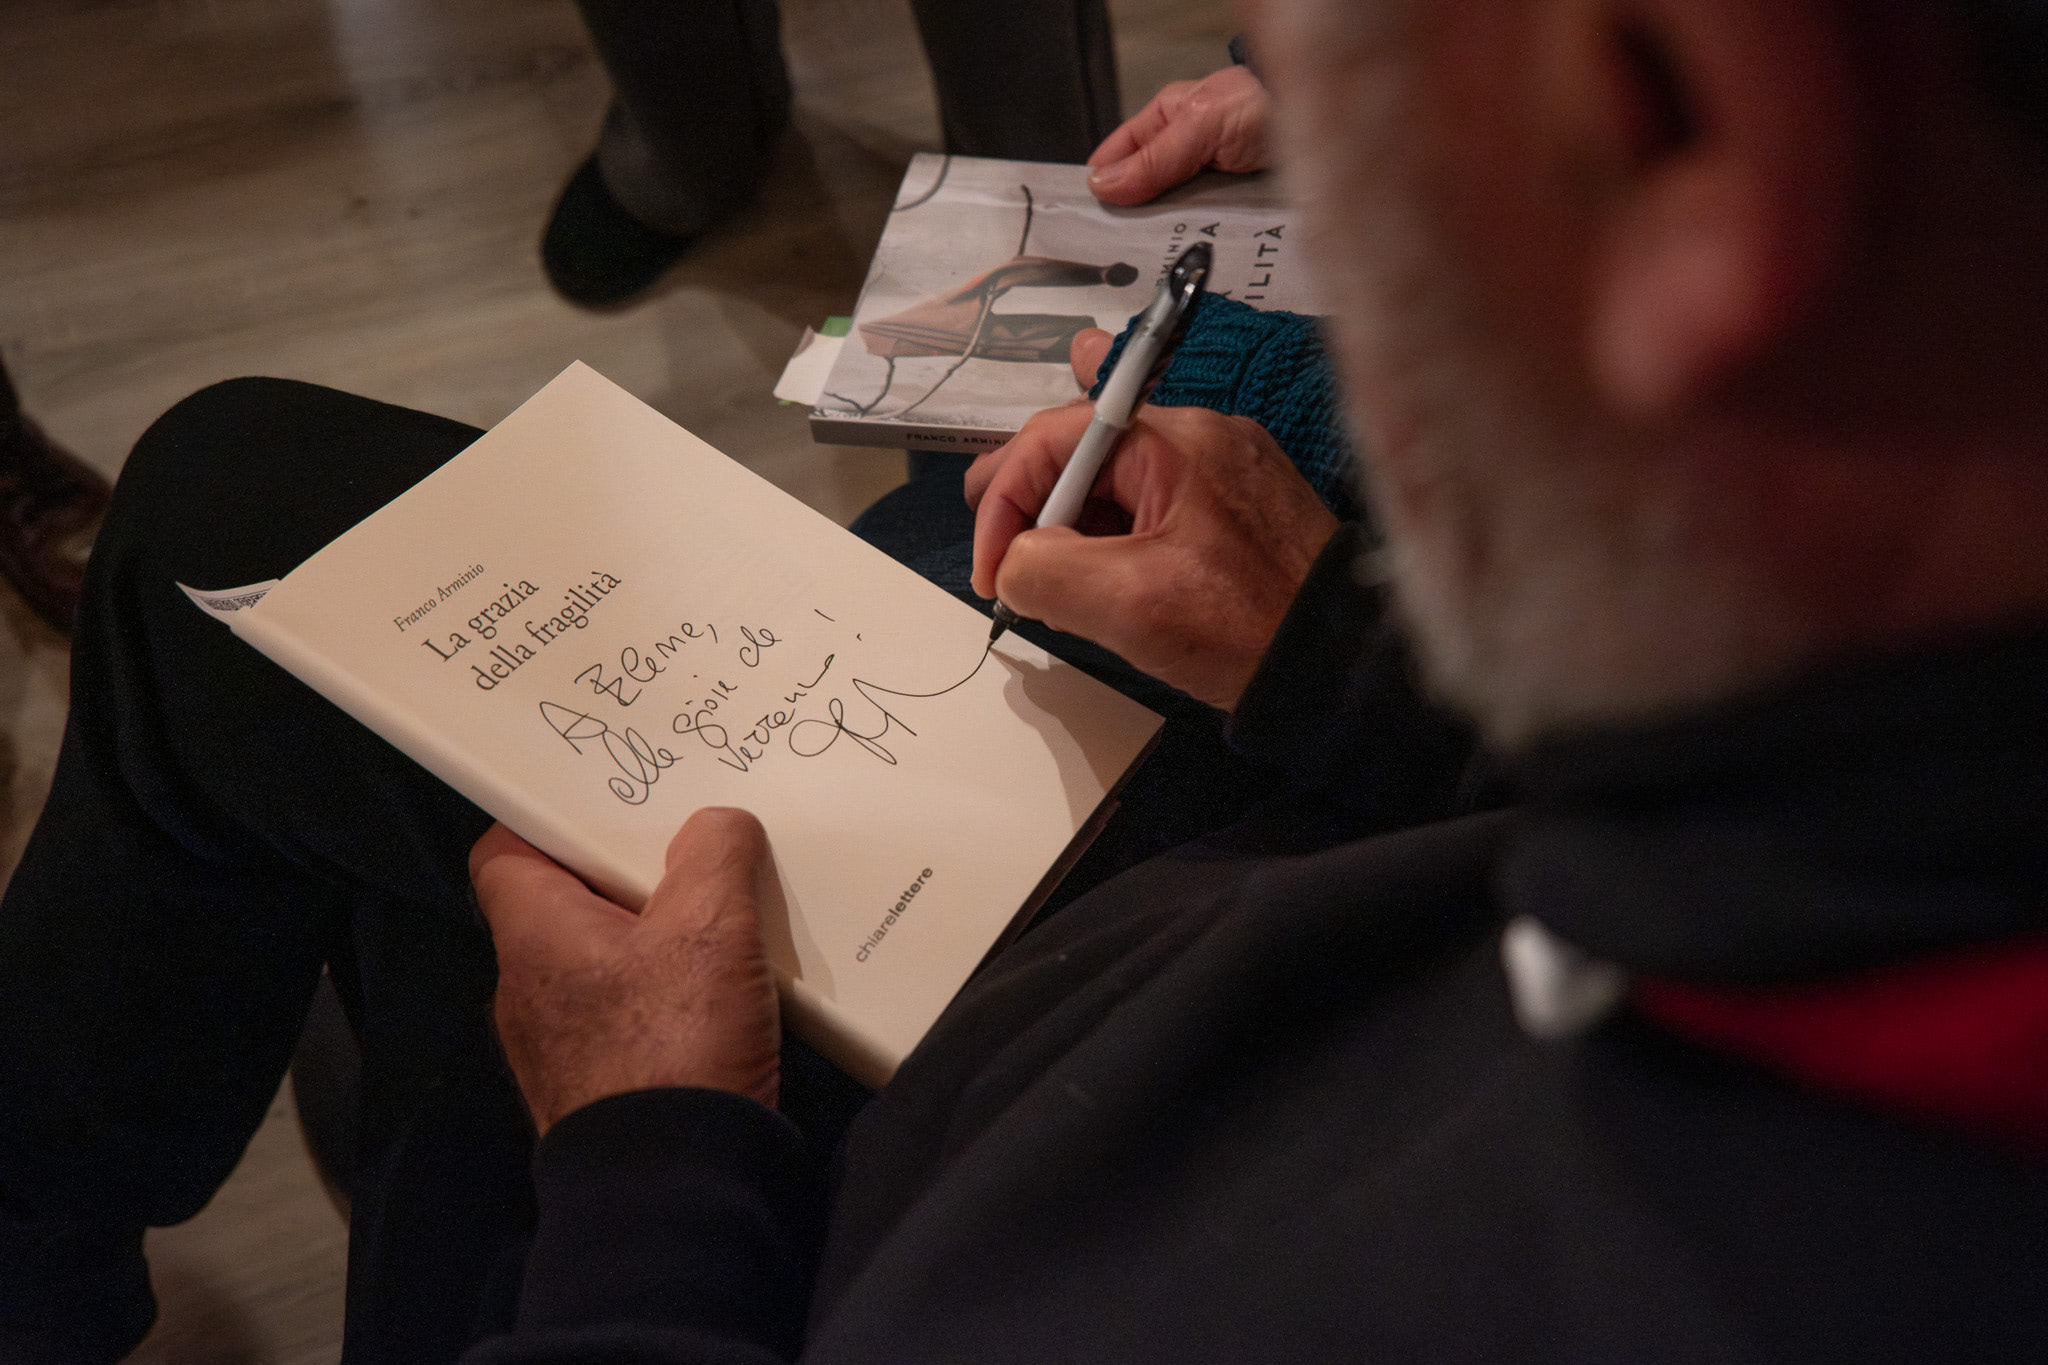 Franco Arminio
La grazia
della fragilità
A Elena,
alle gioie che
verranno!
chiarelettere
MINIO
A
ILITÀ
FRANCO ARMINI